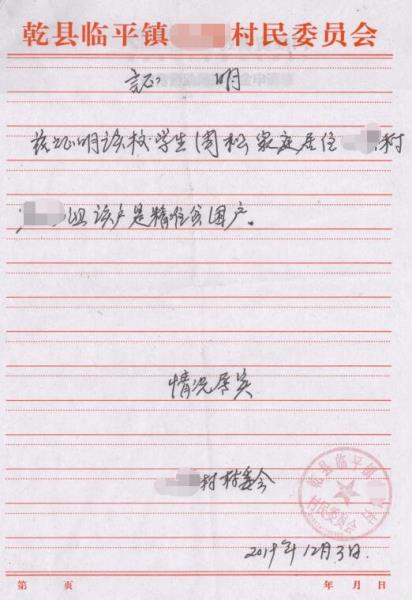 乾县临平镇 村民委员会
证 明
兹证明该校学生周松家庭居住 村
组该户是精准贫困户。
情况属实
村村委会
乾县临平镇
村民委员会
2019年12月3日.
第 页 年 月 日